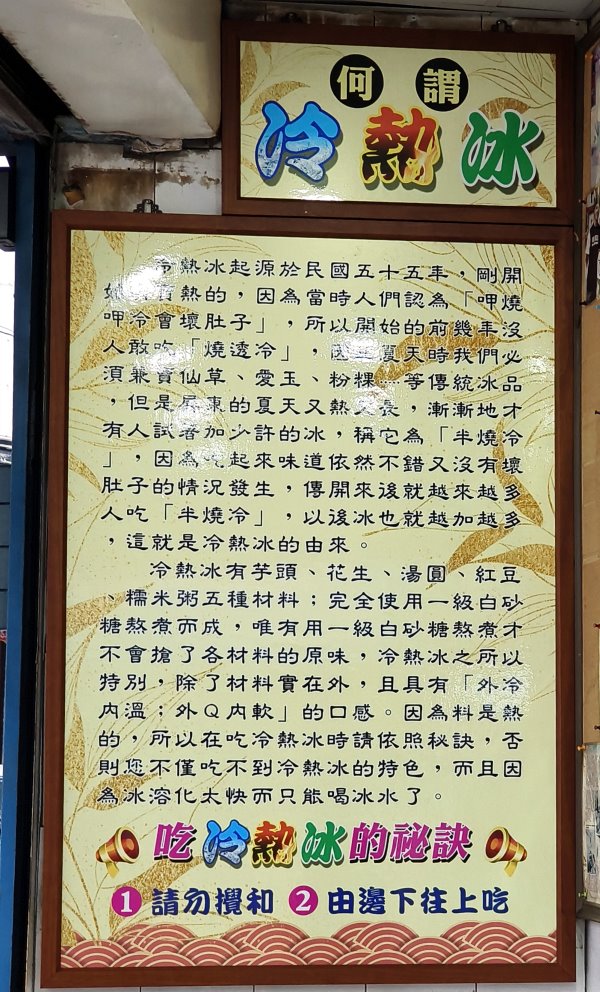 何謂
冷熱冰
冷熱冰起源於民國五十五年，剛開
始賣熱的，因為當時人們認為「呷燒
呷冷會壞肚子」，所以開始的前幾年沒
人敢吃「燒透冷」，因在夏天時我們必
須兼賣仙草、愛玉、粉粿…等傳統冰品
，但是屏東的夏天又熱又長，漸漸地才
有人試著加少許的冰，稱它為「半燒冷
」，因為吃起來味道依然不錯又沒有壞
肚子的情況發生，傳開來後就越來越多
人吃「半燒冷」，以後冰也就越加越多
，這就是冷熱冰的由來。
冷熱冰有芋頭、花生、湯圓、紅豆
、糯米粥五種材料；完全使用一級白砂
糖熬煮而成，唯有用一級白砂糖熬煮才
不會搶了各材料的原味，冷熱冰之所以
特別，除了材料實在外，且具有「外冷
內溫；外Q內軟」的口感。因為料是熱
的，所以在吃冷熱冰時請依照秘訣，否
則您不僅吃不到冷熱冰的特色，而且因
為冰溶化太快而只能喝冰水了。
吃冷熱冰的祕訣
1 請勿攪和 2 由邊下往上吃